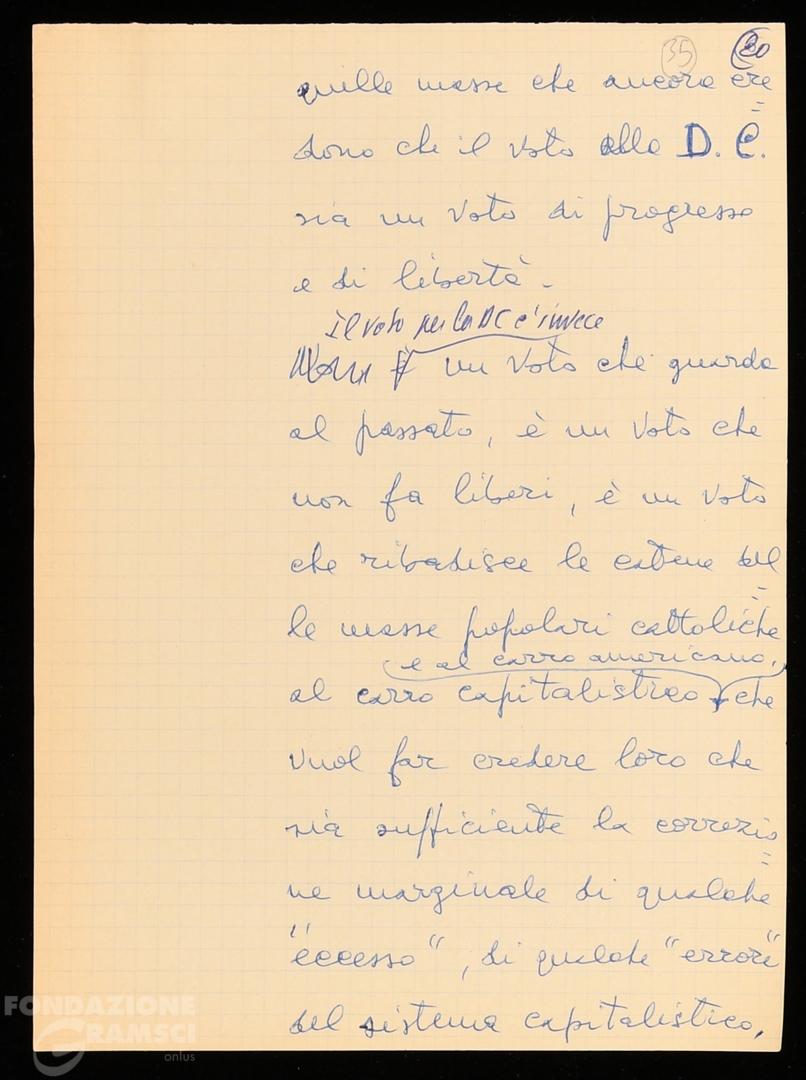 35 20
quelle masse che ancora cre=
dono che il voto alla D.C.
sia un voto di progresso
e di libertà.
Il voto per la DC e' invece
È un voto che guarda
al passato, è un voto che
non fa liberi, è un voto
che ribadisce le catene del=
le masse popolari cattoliche
e al carro americano,
al carro capitalistico che
vuol far credere loro che
sia sufficiente la correzio=
ne marginale di qualche
"eccesso", di qualche "errore"
del sistema capitalistico,
FONDAZIONE
GRAMSCI
onlus